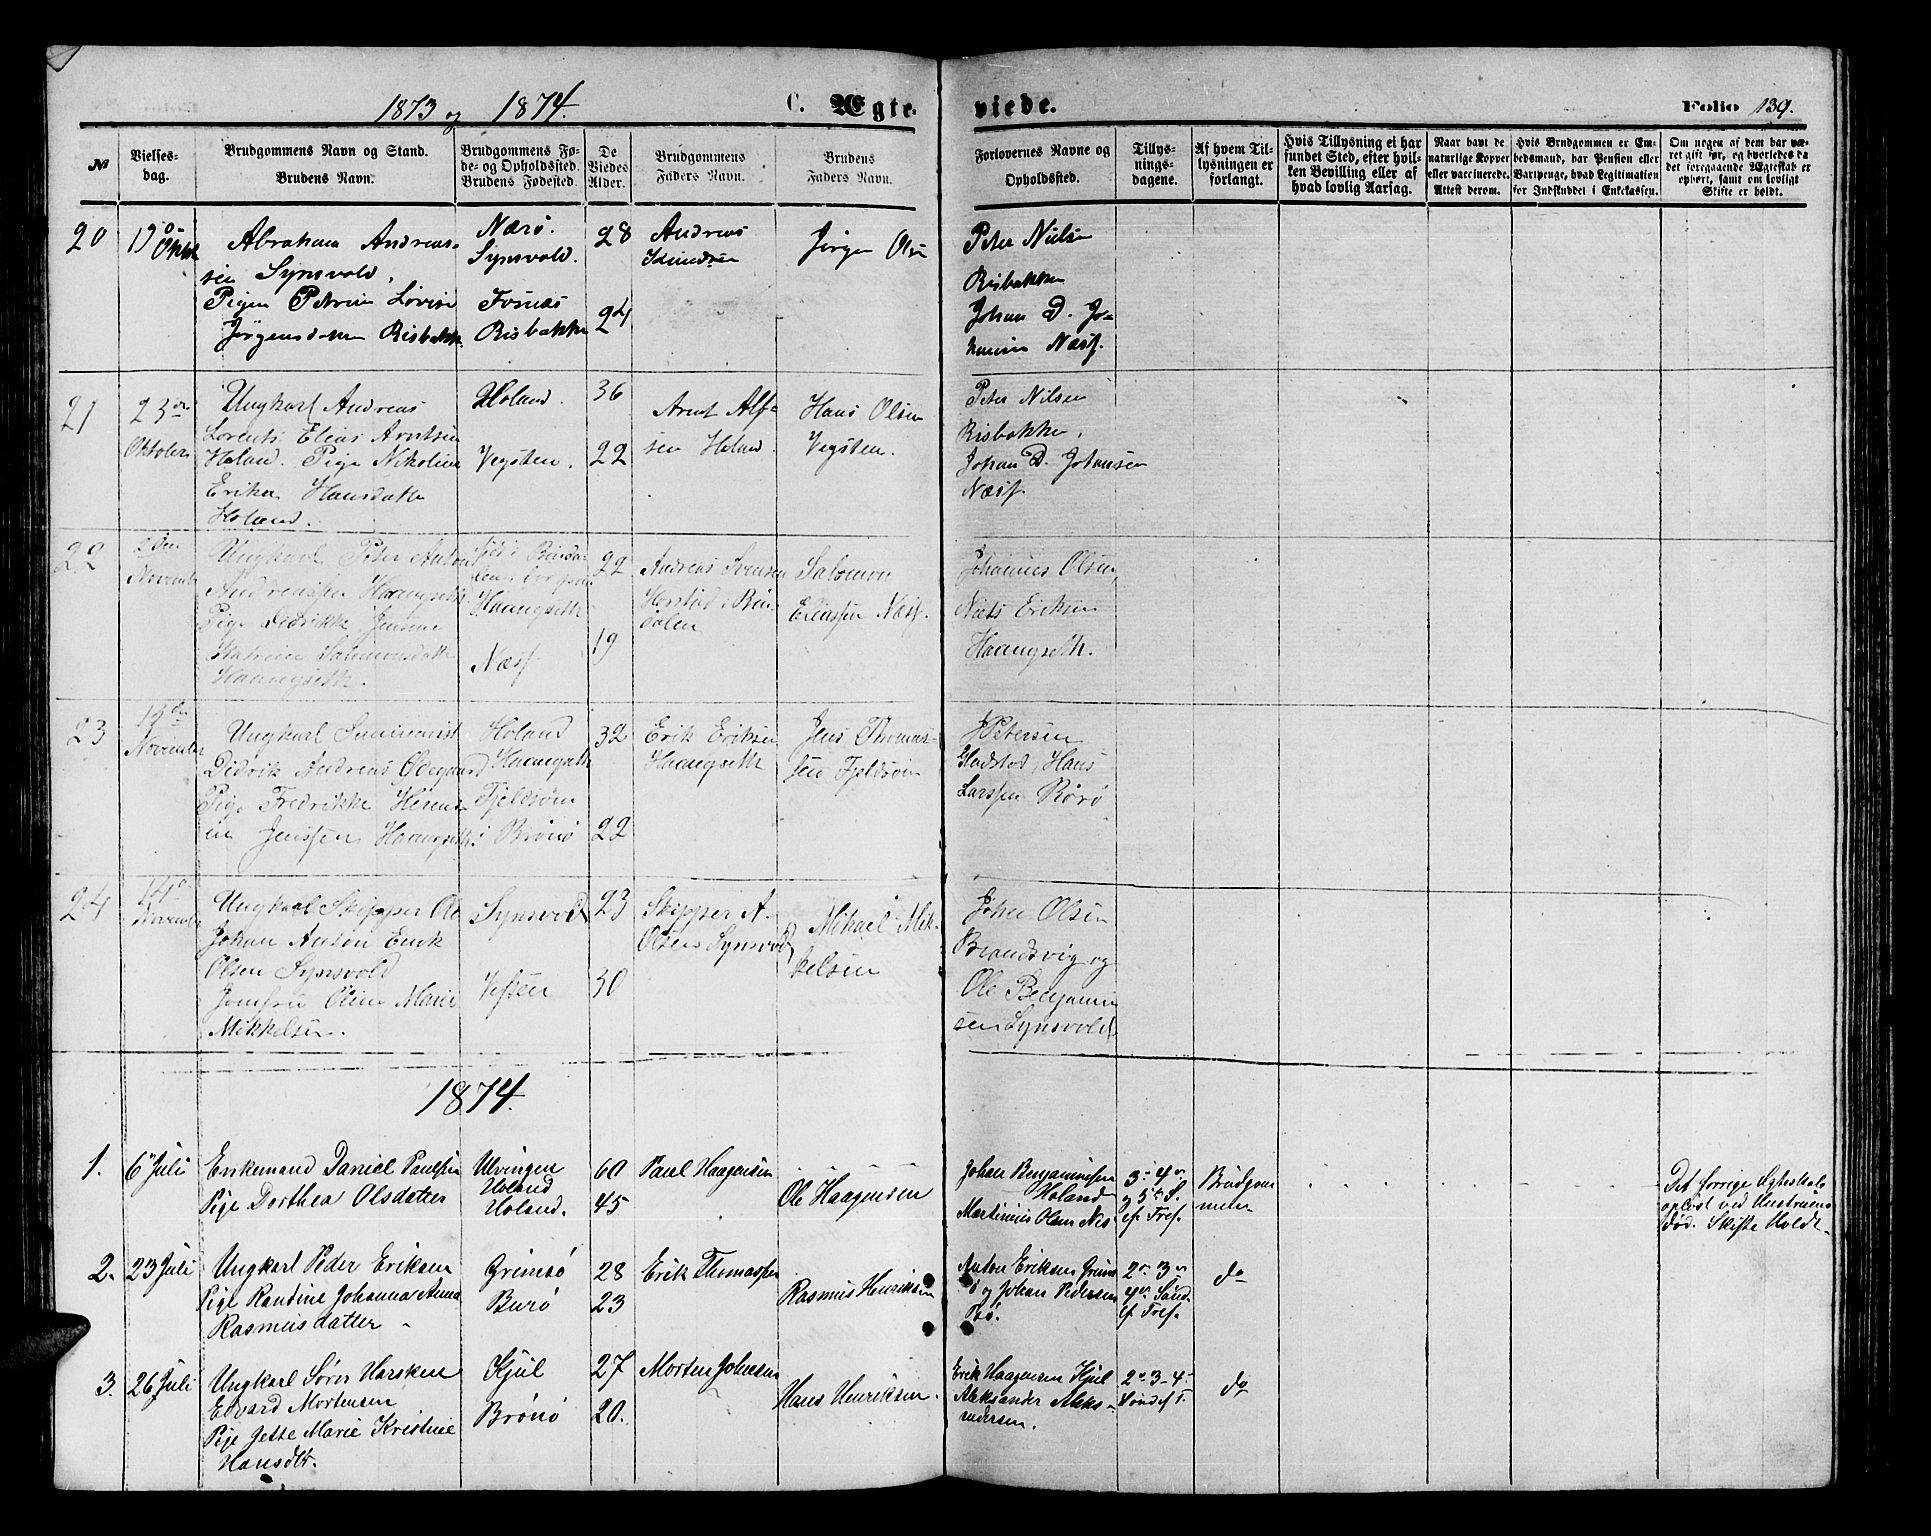 1873 og 1874.
C. Ægte-
viede.
Folio 139.
No
Vielses-
dag.
Brudgommens Navn og Stand.
Brudens Navn.
Brudgommens Fø-
de- og Opholdssted.
Brudens Fødested.
De
Viedes
Alder.
Brudgommens
Faders Navn.
Brudens
Faders Navn.
Forlovernes Navne og
Opholdssted.
Tillys-
nings-
dagene.
Af hvem Til-
lysningen er
forlangt.
Hvis Tillysning ei har
fundet Sted, efter hvil-
ken Bevilling eller af
hvad lovlig Aarsag.
Naar havt de
naturlige Kopper
eller vaccinerede.
Attest derom.
Hvis Brudgommen er Em-
bedsmand, har Pension eller
Vartpenge, hvad Legitimation
for Indskuddet i Enkekassen.
Om nogen af dem har væ-
ret gift før, og hvorledes da
det foregaaende Ægteskab er
ophørt, samt om lovligt
Skifte er holdt.
20
Abraham Andreas-
sen Synsvold.
Pigen Petrine Lovise
Jørgensdatter Risbakke.
Nærø.
Synsvold.
Fosnæs
Risbakke
28
24
Andreas
Jørgen Olsen
Peter Nielsen
Risbakken
Johan D. Jo-
hansen Næss.
21
23de
Oktober
Ungkarl Andreas
Lorents Elias Arntsen
Holand. Pige Nikoline
Erika Hansdatter
Holand.
Holand.
Vegsten.
36
22
Arnt Alf-
sen Holand.
Hans Olsen
Vegsten.
Peter Nilsen
Risbakke.
Johan D. Johansen
Næss.
22
2den
November
Ungkarl Peter Anton
Andreassen Haangseth
Pige Didrikke Jensine
Katrine Salomonsdatter
Haangseth.
født i Bindа-
len, bor paa
Haangseth
Næss
22
19
Andreas Svensen
Horstad i Bin-
dalen
Salomon
Eliassen Næss.
Johannes Olsen,
Niels Eriksen
Haangseth.
23
November
Ungkarl Seminarist
Didrik Andreas Ødegaard
Pige Fredrikke
Jenssen Haangseth.
Holand
Haangseth
Fjeldsøen
i Brønø
32
22
Erik Eriksen
Haangseth
Jens Thomas-
sen Fjeldsøen
J Petersen
Gladstad, Hans
Larssen Rørø
24
14de
November
Ungkarl Skipper Ole
Johan Anton Enok
Olsen Synsvold
Jomfru Oline Marie
Mikkelsen.
Synsvold
Vefsen
23
30
Skipper A.
Olsen Synsvold
Mikael Mik-
kelsen
Johan Olsen
Brandsvig og
Ole Benjamin
sen Synsvold
1874.
1.
6 Juli
Enkemand Daniel Paulsen
Pige Dorthea Olsdatter
Ulvingen
Holand
Holand.
60
45
Paul Haagensen
Ole Haagensen
Johan Benjaminsen
Holand
Martinus Olsen Næs
3- 4de
og 5te S.
ef. Tref.
Brudgom
men
Det forrige Ægteskab
opløst ved Hustruens
død. Skifte Holdt.
2.
23 Juli
Ungkarl Peder Eriksen
Pige Randine Johanna Anna
Rasmusdatter
Grimsø
Burø
28
23
Erik Thomassen
Rasmus Henriksen
Anton Eriksen Grims
ø og Johan Pedersen
2den 3de
4de Sønd.
ef Tref.
do
3.
26 Juli
Ungkarl Søren
Edvard Mortensen
Pige Jette Marie Kristine
Hansdtr.
Kjul
Brønø
27
20.
Morten Johnsen
Hans Henriksen.
Erik Haagensen Kjul
Aleksander Aleks-
andersen.
2- 3- 4-
Sønd ef T.
do